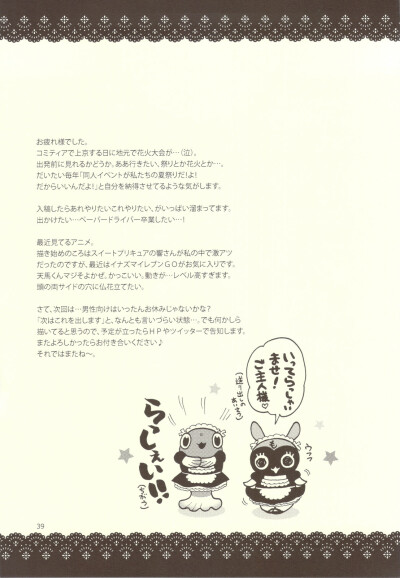 お疲れ様でした。
コミティアで上京する日に地元で花火大会が…(泣)。
出発前に見れるかどうか、ああ行きたい、祭りとか花火とか…。
だいたい毎年「同人イベントが私たちの夏祭りだ!
だからいいんだよ!」と自分を納得させてるような気がします。
入稿したらあれやりたいこれやりたい、がいっぱい溜まってます。
出かけたい…ペーパードライバー卒業したい…!
最近見てるアニメ。
描き始めのころはスイートプリキュアの響さんが私の中で激アツ
でしたが、最近はイナズマイレブンGOがお気に入りです。
天馬くんマジそよかぜ、かっこいい。動きが…レベル高すぎます。
頭の両サイドの穴に仏花立てたい。
さて、次回は…男性向けはいったんお休みじゃないかな?
「次はこれを出します」と、なんとも言いづらい状態…。でも何かしら
描いてると思うので、予定が立ったらHPやツイッターで告知します。
またよろしかったらお付き合いください♪
それではまたね〜。
いってらっしゃい
ませ!
ご主人様♡
(送り出しの
あいさつ)
らっしぇい!!
(ちがう)
ウフフ
39